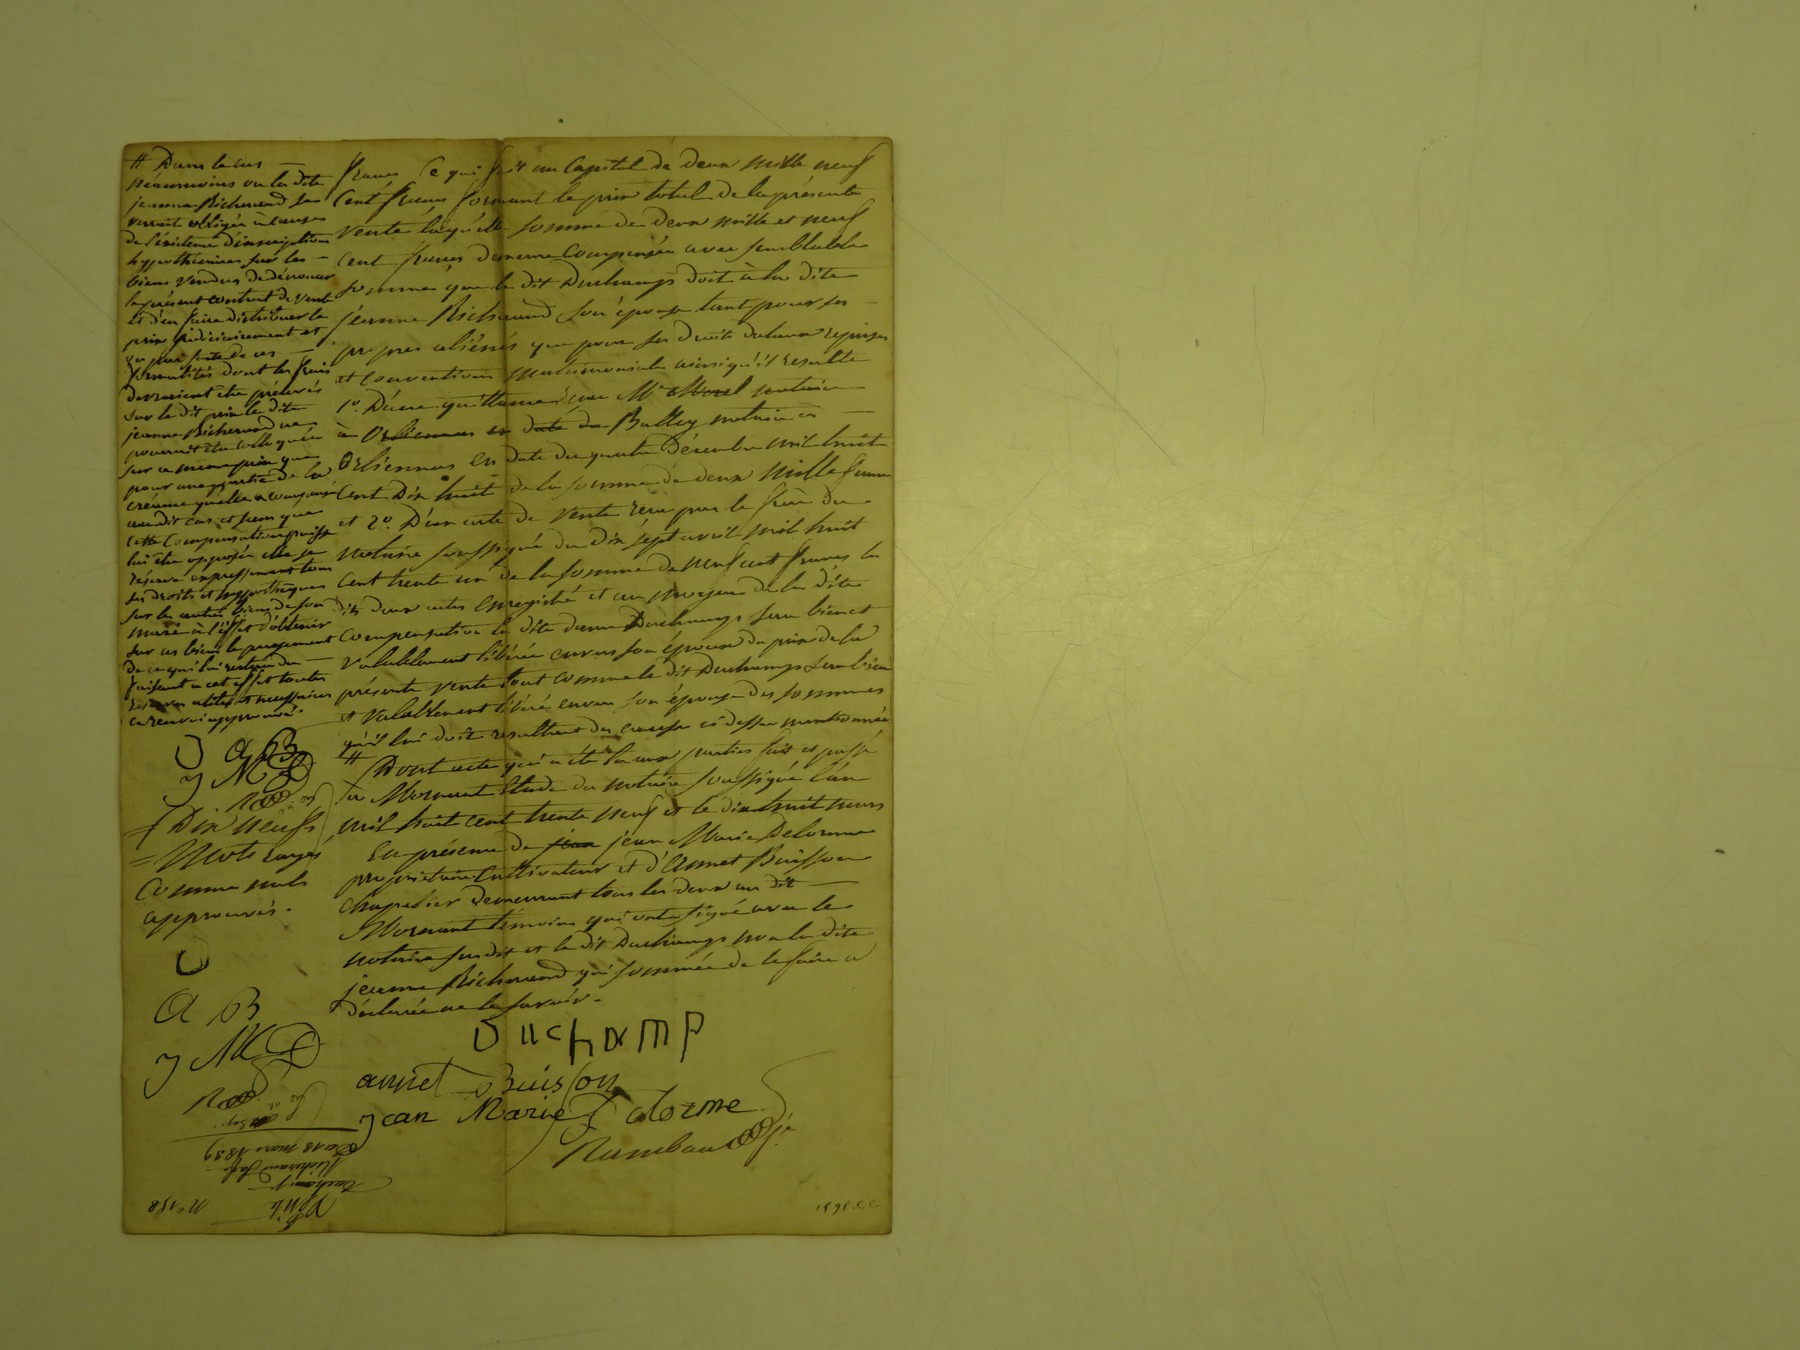 # Dans le cas
néanmoins ou la dite
jeanne Richerand se
verrait obligée à cause
de l'éxistence d'inscriptions
hypothécaires sur les
biens vendus de dénoncer
le présent contrat de vente
et d'en faire distribuer le
prix judiciairement et
ou par suite de ces
formalités dont les frais
devraient être prélevés
sur le dit prix la dite
jeanne Richerand ne
pourrait être colloquée
sur ce même prix que
pour une partie de la
créance qu'elle a compensé
audit cas et sans que
cette Compensation puisse
lui être opposée elle se
réserve expressément tous
ses droits et hypothèques
sur les autres biens de son
mari à l'effet d'obtenir
sur ces biens le payement
de ce qui lui restera du
faisant a cet effet toutes
réserves utiles et nécessaires
ce renvoi approuvé.
D a B
j M D
= Dix neufs
= Mots rayés
Comme nuls
approuvés.
D
a B
j M D
francs Ce qui fait un Capital de deux mille neuf
Cent francs formant le prix total de la présente
vente laquelle somme de deux mille et neuf
cent francs demeure Compensée avec semblable
somme que le dit Duchamps doit à la dite
jeanne Richerand son épouse tant pour ses
propres aliénés que pour ses droits dotaux reprises
et Conventions matrimoniales ainsi qu'il resulte
1°. D'une quittance reçue Me Morel notaire
à Orliennas en date du Balley notaire à
Orliennas en date du quatre Décembre mil huit
Cent Dix huit de la somme de deux Mille francs
et 2°. D'un acte de Vente reçu par le frère du
notaire soussigné du dix sept avril mil huit
Cent trente un de la somme de neuf cent francs les
dits deux actes enregistrés et au moyen de la dite
Compensation la dite dame Duchamps sera bien et
valablement libérée envers son époux du prix de la
présente vente tout comme le dit Duchamps sera bien
et valablement libéré envers son épouse des sommes
qu'il lui doit resultant des causes ci dessus mentionnées
# Dont acte qui a été lu aux parties fait et passé
à Mornant Etude du notaire soussigné l'an
mil huit cent trente neuf et le dix huit mars
En présence de jean jean Marie Delorme
propriétaire Cultivateur et d'annet Buisson
Chapelier demeurant tous les deux au dit
Mornant témoins qui ont signé avec le
notaire susdit et le dit Duchamps non la dite
jeanne Richerand qui sommée de le faire a
déclarée ne le savoir.
DUChAMP
annet Buisson
jean Marie Delorme
Rambaud
Du 18 mars 1839
Richerand fe
Duchamp
Vente
N° 158